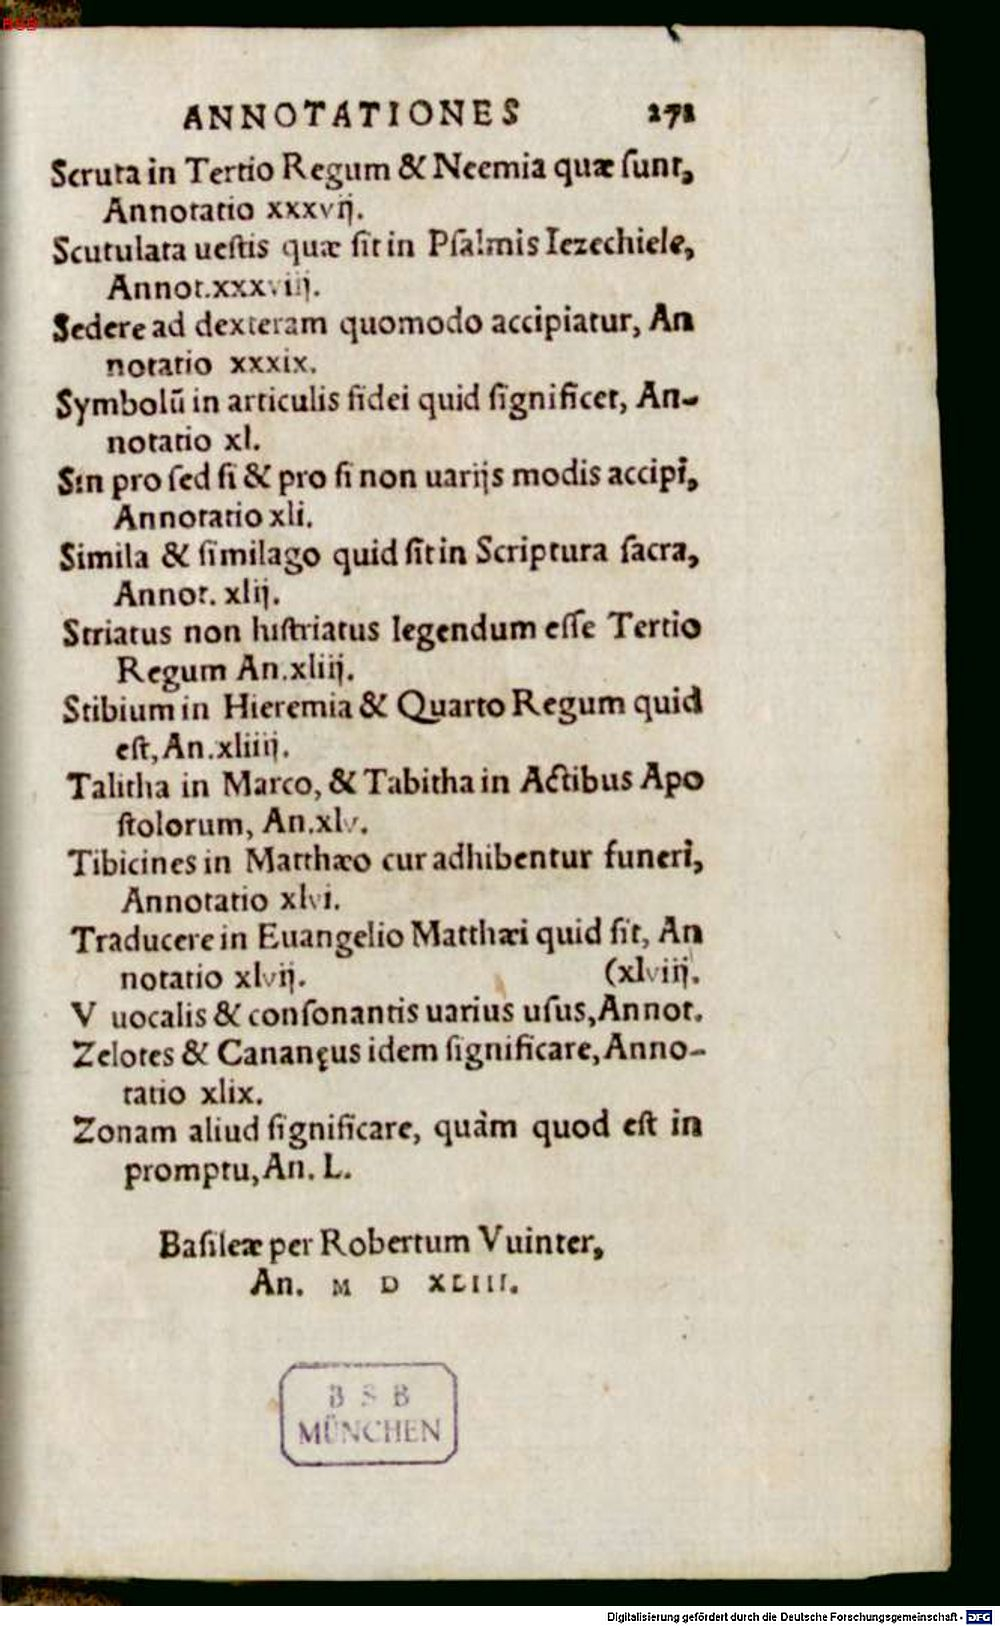 BSB
ANNOTATIONES 271
Scruta in Tertio Regum & Neemia quæ ſunt,
Annotatio xxxvij.
Scutulata ueſtis quæ ſit in Pſalmis Iezechiele,
Annot.xxxviij.
Sedere ad dexteram quomodo accipiatur, An
notatio xxxix.
Symbolū in articulis fidei quid ſignificet, An-
notatio xl.
Sin pro ſed ſi & pro ſi non uarijs modis accipi,
Annotatio xli.
Simila & ſimilago quid ſit in Scriptura ſacra,
Annot. xlij.
Striatus non hiſtriatus legendum eſſe Tertio
Regum An.xliij.
Stibium in Hieremia & Quarto Regum quid
eſt, An.xliiij.
Talitha in Marco, & Tabitha in Actibus Apo
ſtolorum, An.xlv.
Tibicines in Matthæo cur adhibentur funeri,
Annotatio xlvi.
Traducere in Euangelio Matthæi quid ſit, An
notatio xlvij. (xlviij.
V uocalis & conſonantis uarius uſus, Annot.
Zelotes & Cananęus idem ſignificare, Anno-
tatio xlix.
Zonam aliud ſignificare, quàm quod eſt in
promptu, An. L.
Baſileæ per Robertum Vuinter,
An. M D XLIII.
BSB
MÜNCHEN
Digitalisierung gefördert durch die Deutsche Forschungsgemeinschaft - DFG